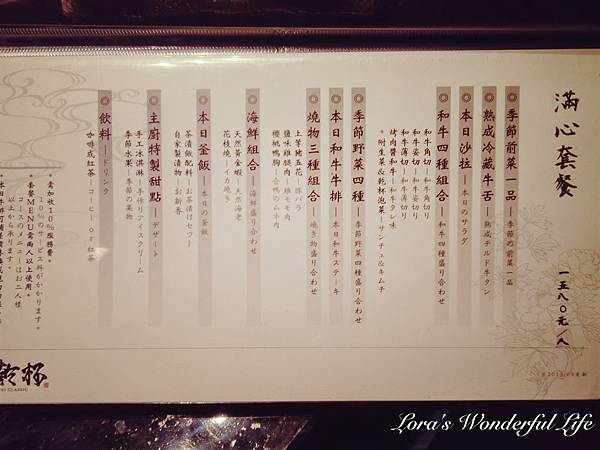 滿心套餐
一五八〇元/人
季節前菜一品—季節の前菜一品
熟成冷藏牛舌—熟成チルド牛タン
本日沙拉—本日のサラダ
和牛四種組合—和牛四種盛り合わせ
和牛角切—和牛角切り
和牛姿切—和牛姿切り
和牛薄切—和牛薄切り
烤肉醬和牛—和牛タレ味
*附生菜&乾杯泡菜—サンチュ&キムチ
季節野菜四種—季節野菜四種盛り合わせ
本日和牛牛排—本日和牛ステーキ
燒物三種組合—焼き物盛り合わせ
上等豬五花—上豚バラ
鹽味雞腿肉—鶏モモ肉
櫻桃鴨胸—合鴨のムネ肉
海鮮組合—海鮮盛り合わせ
天然黃金蝦—天然海老
花枝燒—イカ焼き
本日釜飯—本日の釜飯
茶漬飯配料—お茶漬けセット
自家製漬物—お新香
主廚特製甜點—デザート
手工冰淇淋—手作りアイスクリーム
季節水果—季節の果物
飲料—ドリンク
咖啡或紅茶—コーヒー or 紅茶
*需加收10%服務費。
10%のサービス料がかかります。
*套餐MENU需兩人以上使用。
コースのメニューはお二人様
以上から承ります。
乾杯
Lora's Wonderful Life